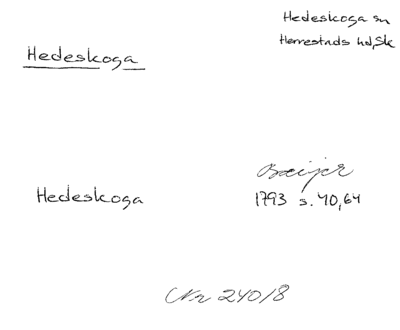 Hedeskoga sn
Herrestads hd, Sk
Hedeskoga
Hedeskoga
1793 s. 40, 64
Nr 240/8